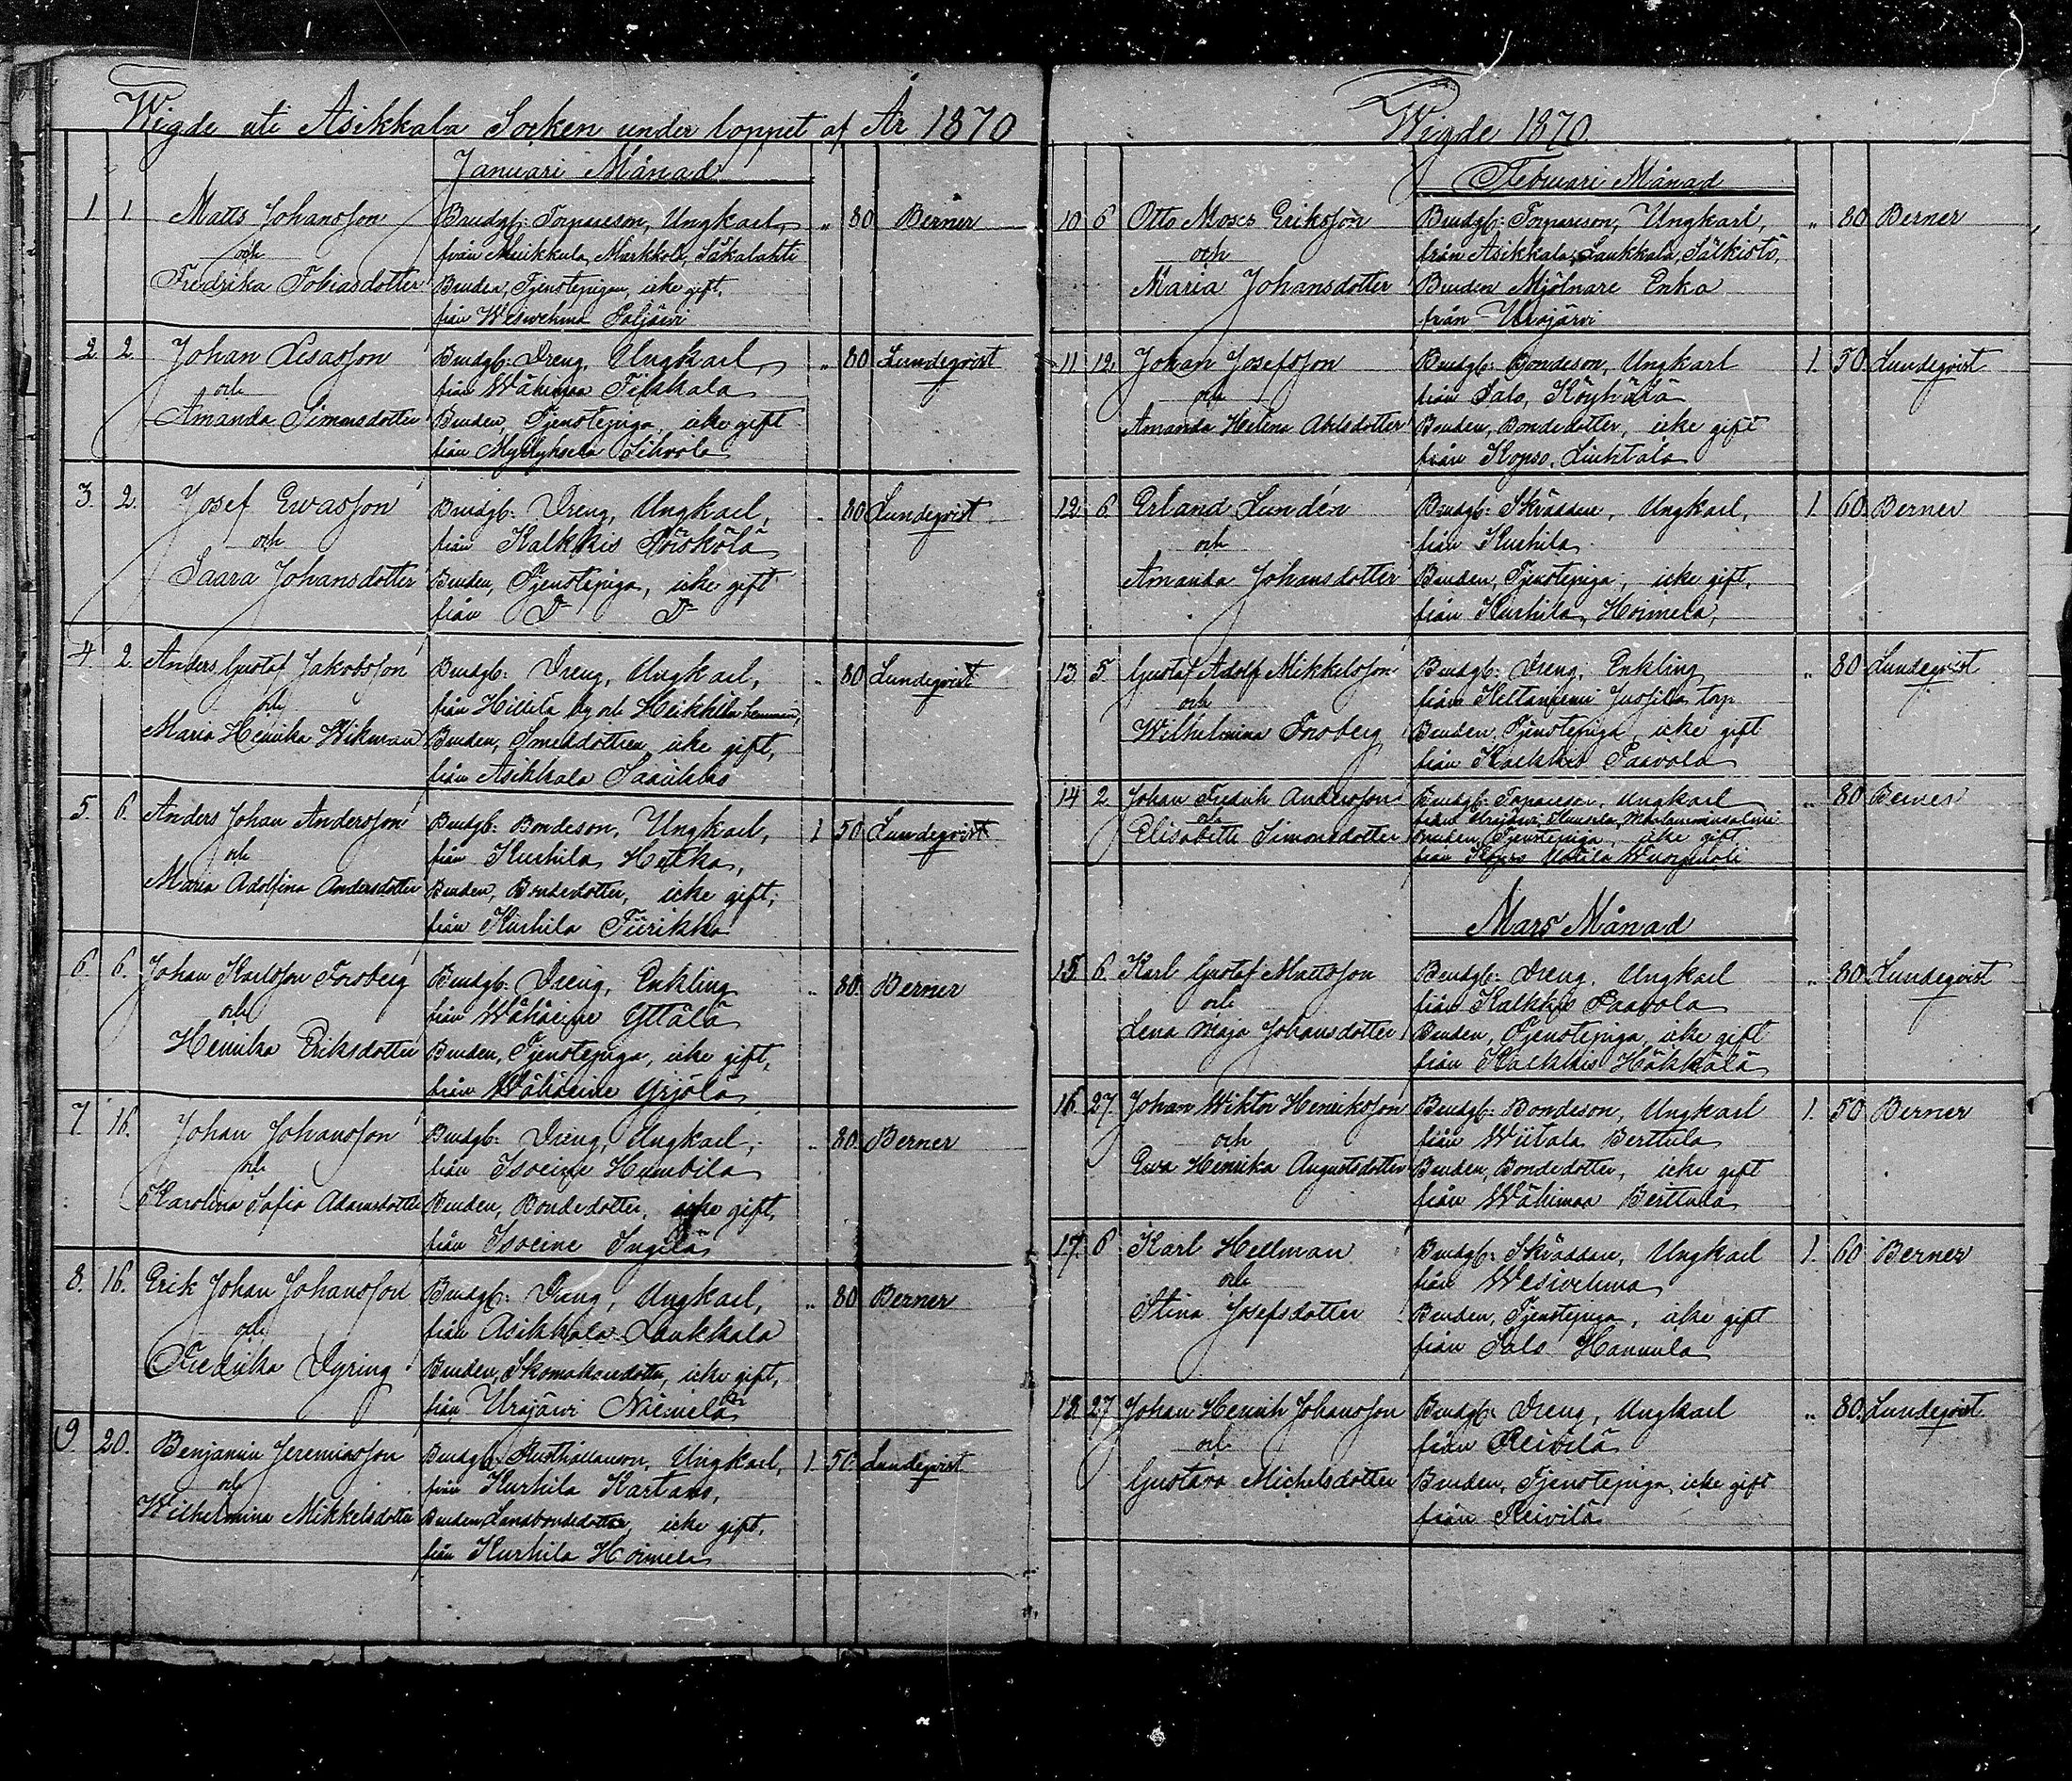 Wigde uti Asikkala Socken under loppet af År 1870
Januari Månad
1. 1. Matts Johansson Brudgb: Torpareson, Ungkarl, " 80 Berner
och från Muikkula, Markkola, Säkalahti
Fredrika Tobiasdotter Bruden, Tjenstepigan, icke gift,
från Wesivehma Paljärvi
2 2. Johan Esasson Brudgb: Dreng, Ungkarl, " 80 Lundeqvist
och från Wähimaa Tikkala
Amanda Simonsdotter Bruden, Tjenstepiga, icke gift
från Myllykselä Sihvola
3. 2. Josef Ewasson Brudgb: Dreng, Ungkarl, " 80 Lundeqvist
och från Kalkkis
Saara Johansdotter Bruden, Tjenstepiga, icke gift
från Do Do
4. 2. Anders Gustaf Jakobsson Brudgb: Dreng, Ungkarl, " 80 Lundeqvist
och från Hillilä by och Heikkilä hemman,
Maria Henrika Wikman Bruden, Smeddottren icke gift,
från Asikkala
5. 6. Anders Johan Andersson Brudgb: Bondeson, Ungkarl, 1 50 Lundeqvist
och från Kurhila Hetka,
Maria Adolfina Andersdotter Bruden, Bondedotter, icke gift,
från Kurhila Tiirikka
6. 6. Johan Karlsson Forsberg Brudgb: Dreng, Enkling " 80. Berner
och från Wähäeine Yttälä
Henrika Eriksdotter Bruden, Tjenstepiga, icke gift,
från Wähäeine Yrjölä
7. 16. Johan Johansson Brudgb: Dreng, Ungkarl, " 80. Berner
och från Isoeine Humbila
Karolina Sofia Adamsdotter Bruden, Bondedotter, icke gift,
från Isoeine Ingilä
8. 16. Erik Johan Johansson Brudgb: Dreng, Ungkarl, " 80 Berner
och från Asikkala Laukkala
Fredrika Dyring Bruden, Skomakaredotter, icke gift,
från Urajärvi Niemelä
9. 20. Benjamin Jeremiasson Brudgb: Rusthållareson, Ungkarl, 1. 50. Lundeqvist
och från Kurhila Kartano,
Wilhelmina Mikkelsdotter Bruden Landbondedotter, icke gift,
från Kurhila Hoimela
Wigde 1870.
Februari Månad
10 6 Otto Moses Eriksson Brudgb: Torpareson, Ungkarl, " 80 Berner
och från Asikkala, Laukkala, Sälkistö,
Maria Johansdotter Bruden Mjölnare Enka
från Urajärvi
11 12. Johan Josefsson Brudgb: Bondeson, Ungkarl 1. 50. Lundeqvist
och från Salo, Köyhälä
Amanda Helena Abelsdotter Bruden, Bondedotter, icke gift
från Kopso, Liuhtala
12. 6. Erland Lundén Brudgb: Skräddare, Ungkarl, 1 60. Berner
och från Kurhila
Amanda Johansdotter Bruden, Tjenstepiga, icke gift,
från Kurhila, Hoimela,
13. 5. Gustaf Adolf Mikkelsson Brudgb: Dreng, Enkling " 80 Lundeqvist
och från Keltaniemi Jussila torp
Wilhelmina Forsberg Bruden, Tjenstepiga, icke gift
från Kalkkis Paavola
14 2 Johan Fredrik Andersson Brudgb: Torpareson, Ungkarl " 80 Berner
och från Urajärvi,
Elisabeth Simonsdotter Bruden, Tjenstepiga, icke gift
från Kopso Uotila
Mars Månad
15 6 Karl Gustaf Mattsson Brudgb: Dreng, Ungkarl " 80. Lundeqvist
och från Kalkkis Paavola
Lena Maja Johansdotter Bruden, Tjenstepiga, icke gift
från Kalkkis Häkkälä
16. 27. Johan Wiktor Henriksson Brudgb: Bondeson, Ungkarl 1. 50 Berner
och från Wiitala Berttula
Ewa Henrika Augustsdotter Bruden, Bondedotter, icke gift
från Wähimaa Berttula
17. 6 Karl Hellman Brudgb: Skräddare, Ungkarl 1. 60 Berner
och från Wesivehma
Stina Josefsdotter Bruden, Tjenstepiga, icke gift
från Salo Hannula
18. 27 Johan Henrik Johansson Brudgb: Dreng, Ungkarl " 80. Lundeqvist
och från Reivilä
Gustava Michelsdotter Bruden, Tjenstepiga, icke gift
från Reivilä